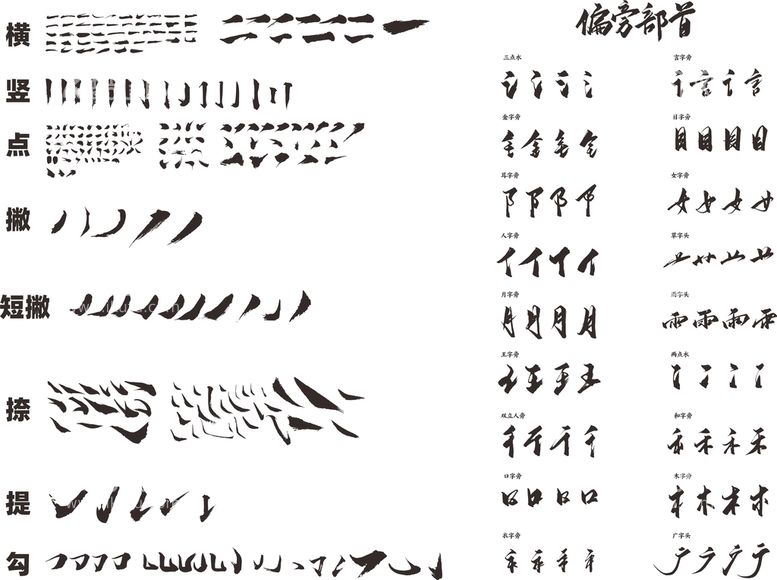 横
竖
点
撇
短撇
捺
提
勾
偏旁部首
三点水
言字旁
金字旁
目字旁
耳字旁
女字旁
人字旁
草字头
月字旁
雨字头
王字旁
两点水
双立人旁
和字旁
口字旁
木字旁
衣字旁
广字头